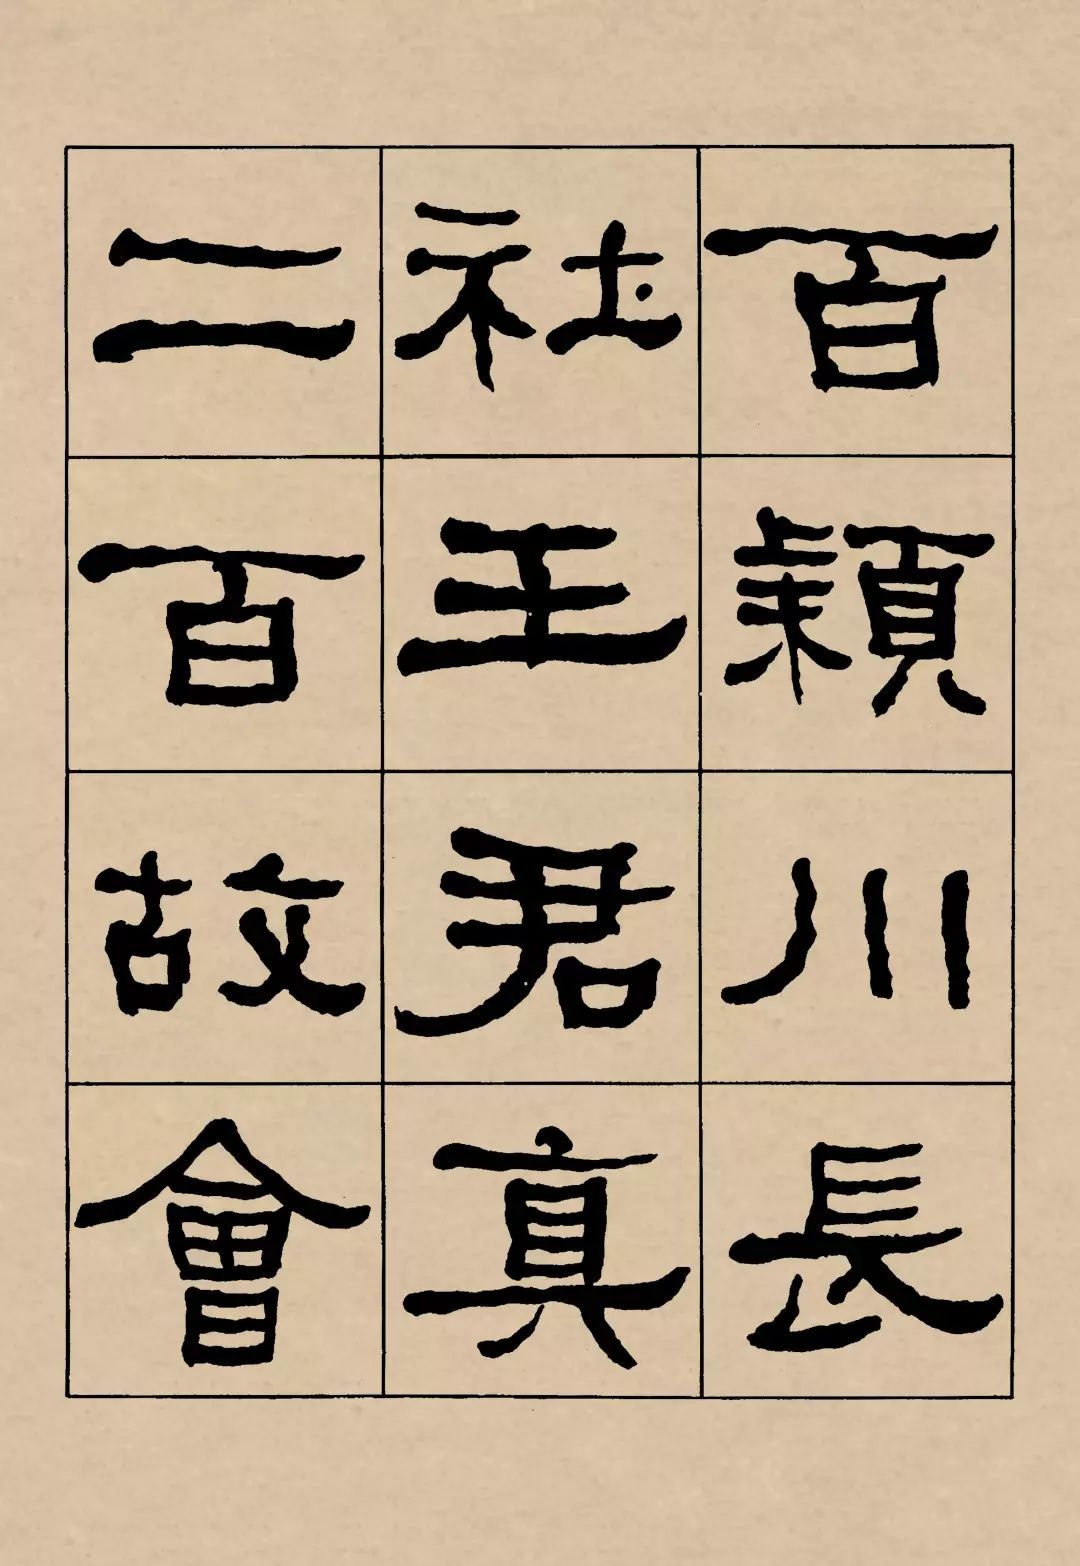 百穎川長
社王君真
二百故會